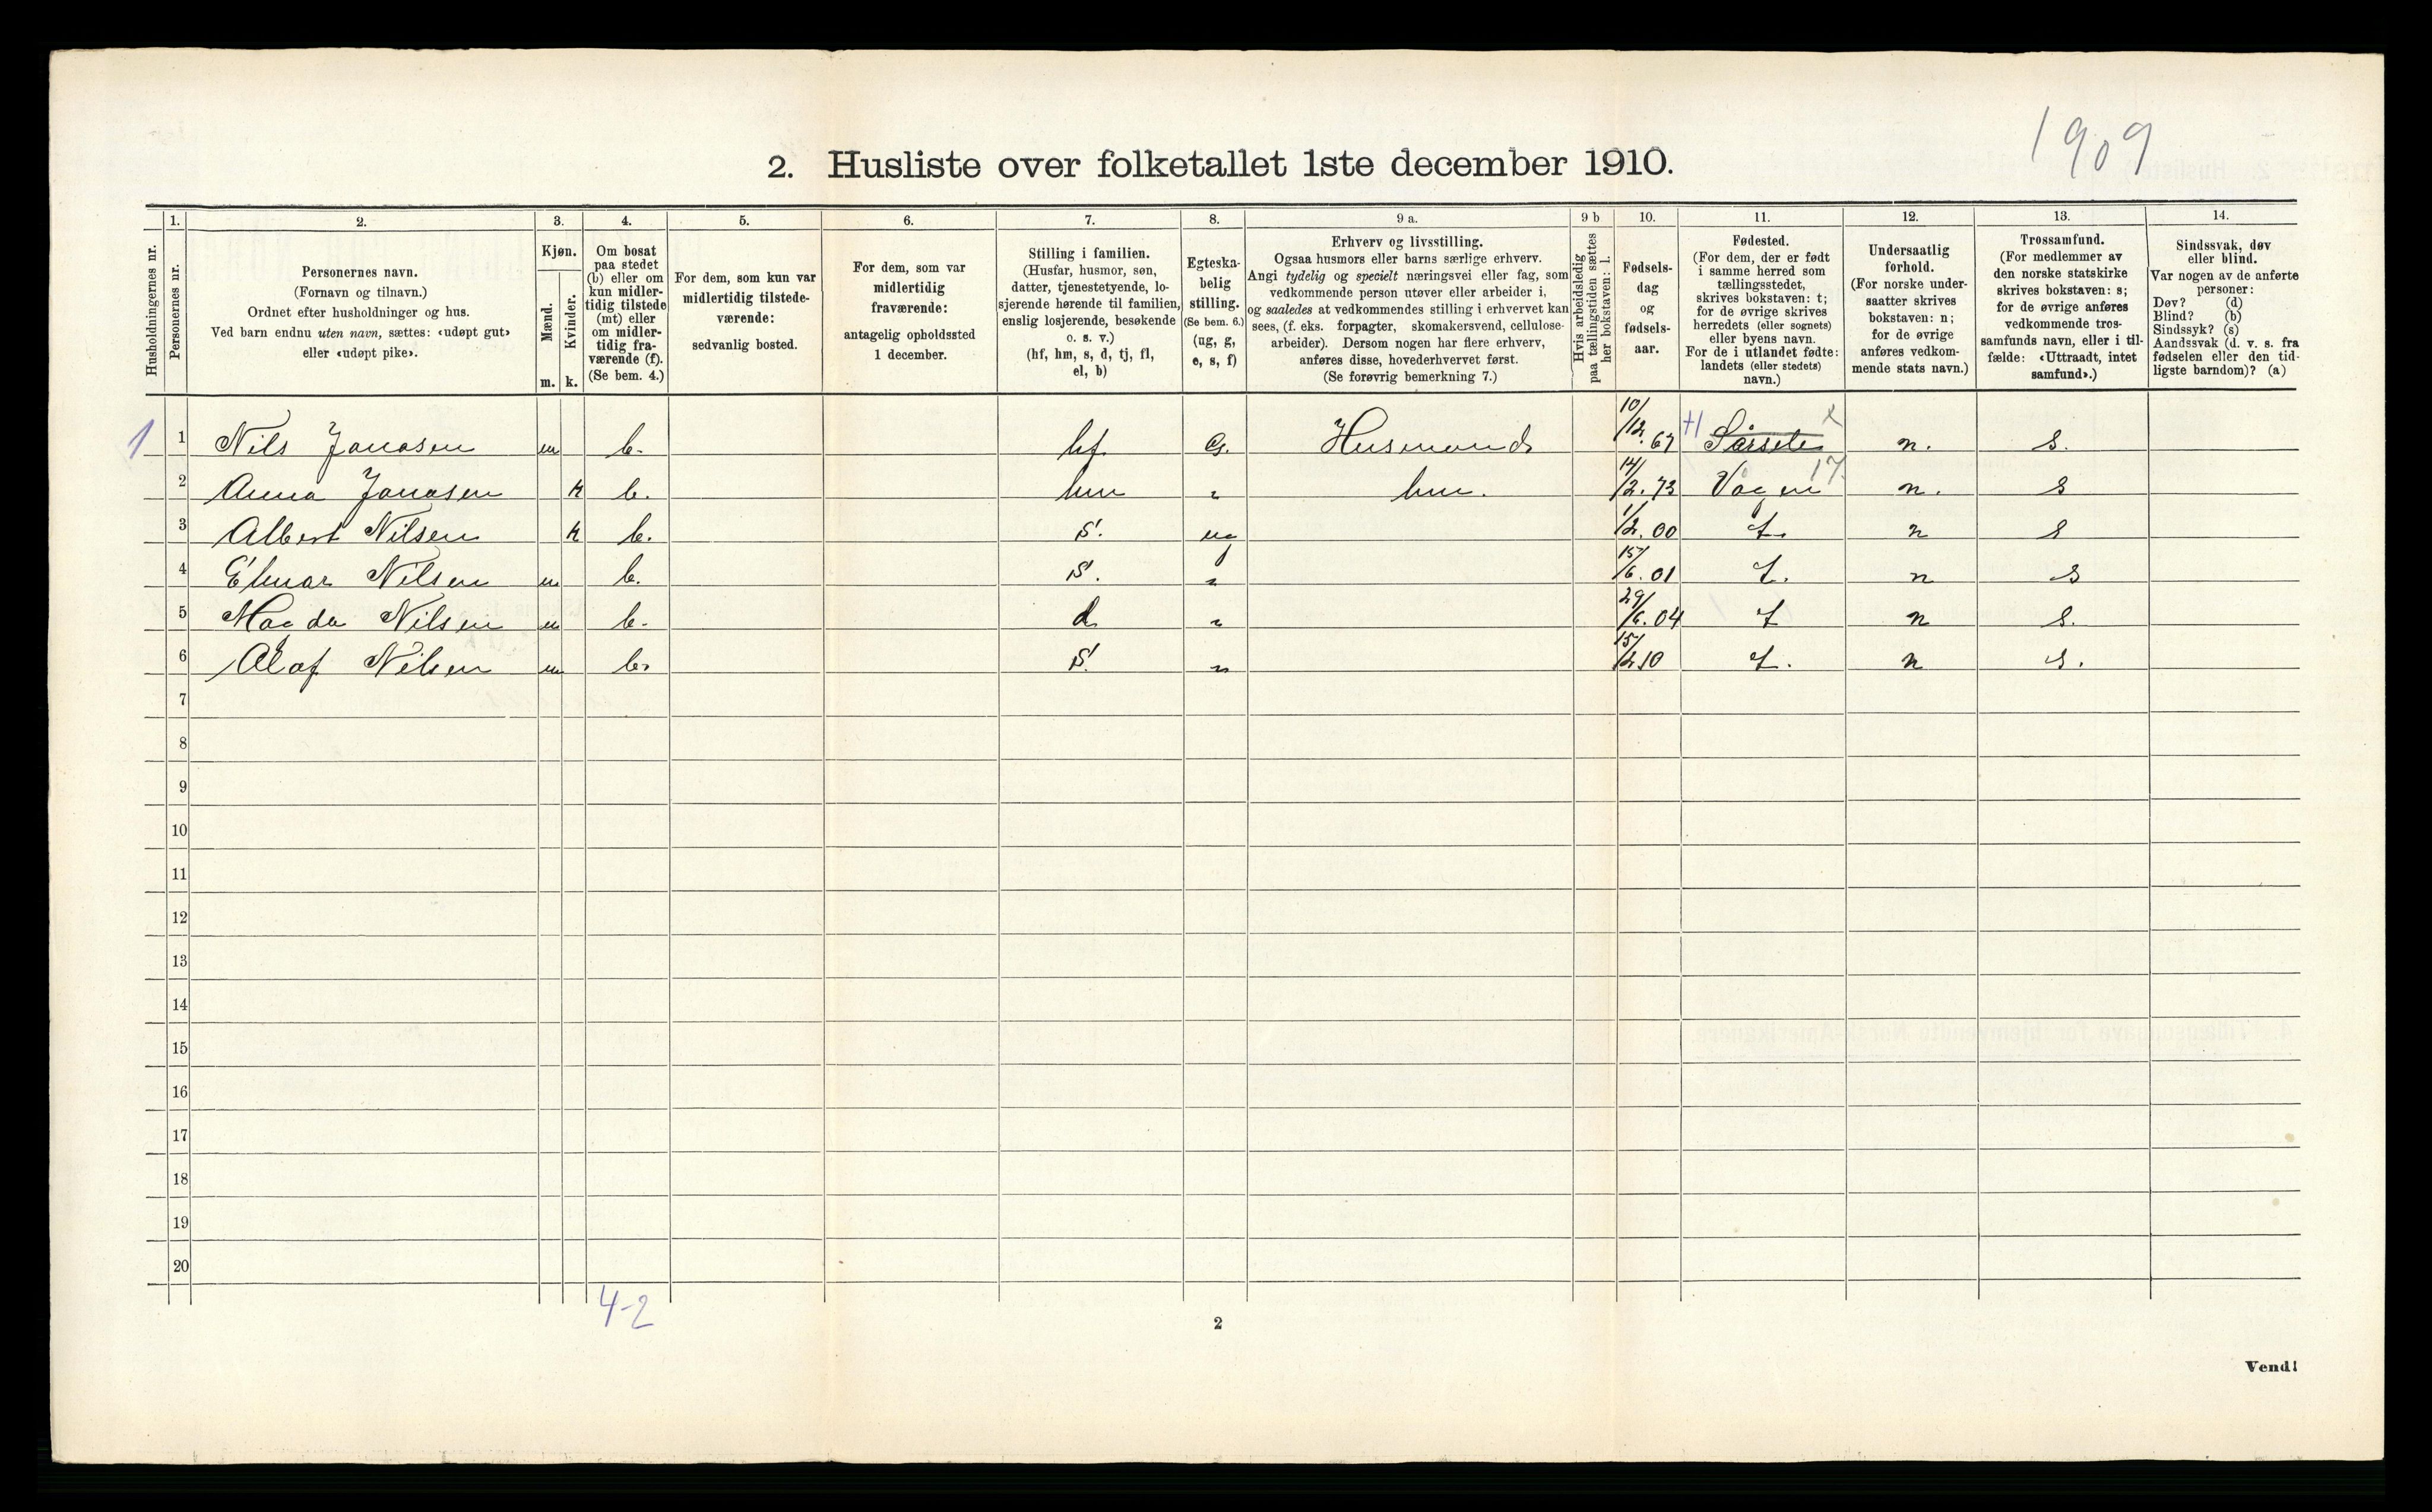 1909
2. Husliste over folketallet 1ste december 1910.
1. 2. 3. 4. 5. 6. 7. 8. 9 a. 9 b 10. 11. 12. 13. 14.
Husholdningernes nr.
Personernes nr.
Personernes navn.
(Fornavn og tilnavn.)
Ordnet efter husholdninger og hus.
Ved barn endnu uten navn, sættes: «udøpt gut»
eller «udøpt pike».
Kjøn.
Mænd.
Kvinder.
m. k.
Om bosat
paa stedet
(b) eller om
kun midler-
tidig tilstede
(mt) eller
om midler-
tidig fra-
værende (f).
(Se bem. 4.)
For dem, som kun var
midlertidig tilstede-
værende:
sedvanlig bosted.
For dem, som var
midlertidig
fraværende:
antagelig opholdssted
1 december.
Stilling i familien.
(Husfar, husmor, søn,
datter, tjenestetyende, lo-
sjerende hørende til familien,
enslig losjerende, besøkende
o. s. v.)
(hf, hm, s, d, tj, fl,
el, b)
Egteska-
belig
stilling.
(Se bem. 6.)
(ug, g,
e, s, f)
Erhverv og livsstilling.
Ogsaa husmors eller barns særlige erhverv.
Angi tydelig og specielt næringsvei eller fag, som
vedkommende person utøver eller arbeider i,
og saaledes at vedkommendes stilling i erhvervet kan
sees, (f. eks. forpagter, skomakersvend, cellulose-
arbeider). Dersom nogen har flere erhverv,
anføres disse, hovederhvervet først.
(Se forøvrig bemerkning 7.)
Hvis arbeidsledig
paa tællingstiden sættes
her bokstaven: l.
Fødsels-
dag
og
fødsels-
aar.
Fødested.
(For dem, der er født
i samme herred som
tællingsstedet,
skrives bokstaven: t;
for de øvrige skrives
herredets (eller sognets)
eller byens navn.
For de i utlandet fødte:
landets (eller stedets)
navn.)
Undersaatlig
forhold.
(For norske under-
saatter skrives
bokstaven: n;
for de øvrige
anføres vedkom-
mende stats navn.)
Trossamfund.
(For medlemmer av
den norske statskirke
skrives bokstaven: s;
for de øvrige anføres
vedkommende tros-
samfunds navn, eller i til-
fælde: «Uttraadt, intet
samfund».)
Sindssvak, døv
eller blind.
Var nogen av de anførte
personer:
Døv? (d)
Blind? (b)
Sindssyk? (s)
Aandssvak (d. v. s. fra
fødselen eller den tid-
ligste barndom)? (a)
1 1 Nils Janasen m b. hf. G. Husmand 10/12.67 n. s.
2 Anna Janasen k b. hm " hm. 14/2.73 Vågen 17 n. s
3 Albert Nilsen k b. s. ug 1/2.00 t. n s
4 Elmar Nilsen m b. s. " 15/6.01 t. n s
5 Magda Nilsen m b. d " 29/6.04 t n s.
6 Olaf Nilsen m b. s. " 15/2 10 t. n s.
7
8
9
10
11
12
13
14
15
16
17
18
19
20
4-2
2
Vend!